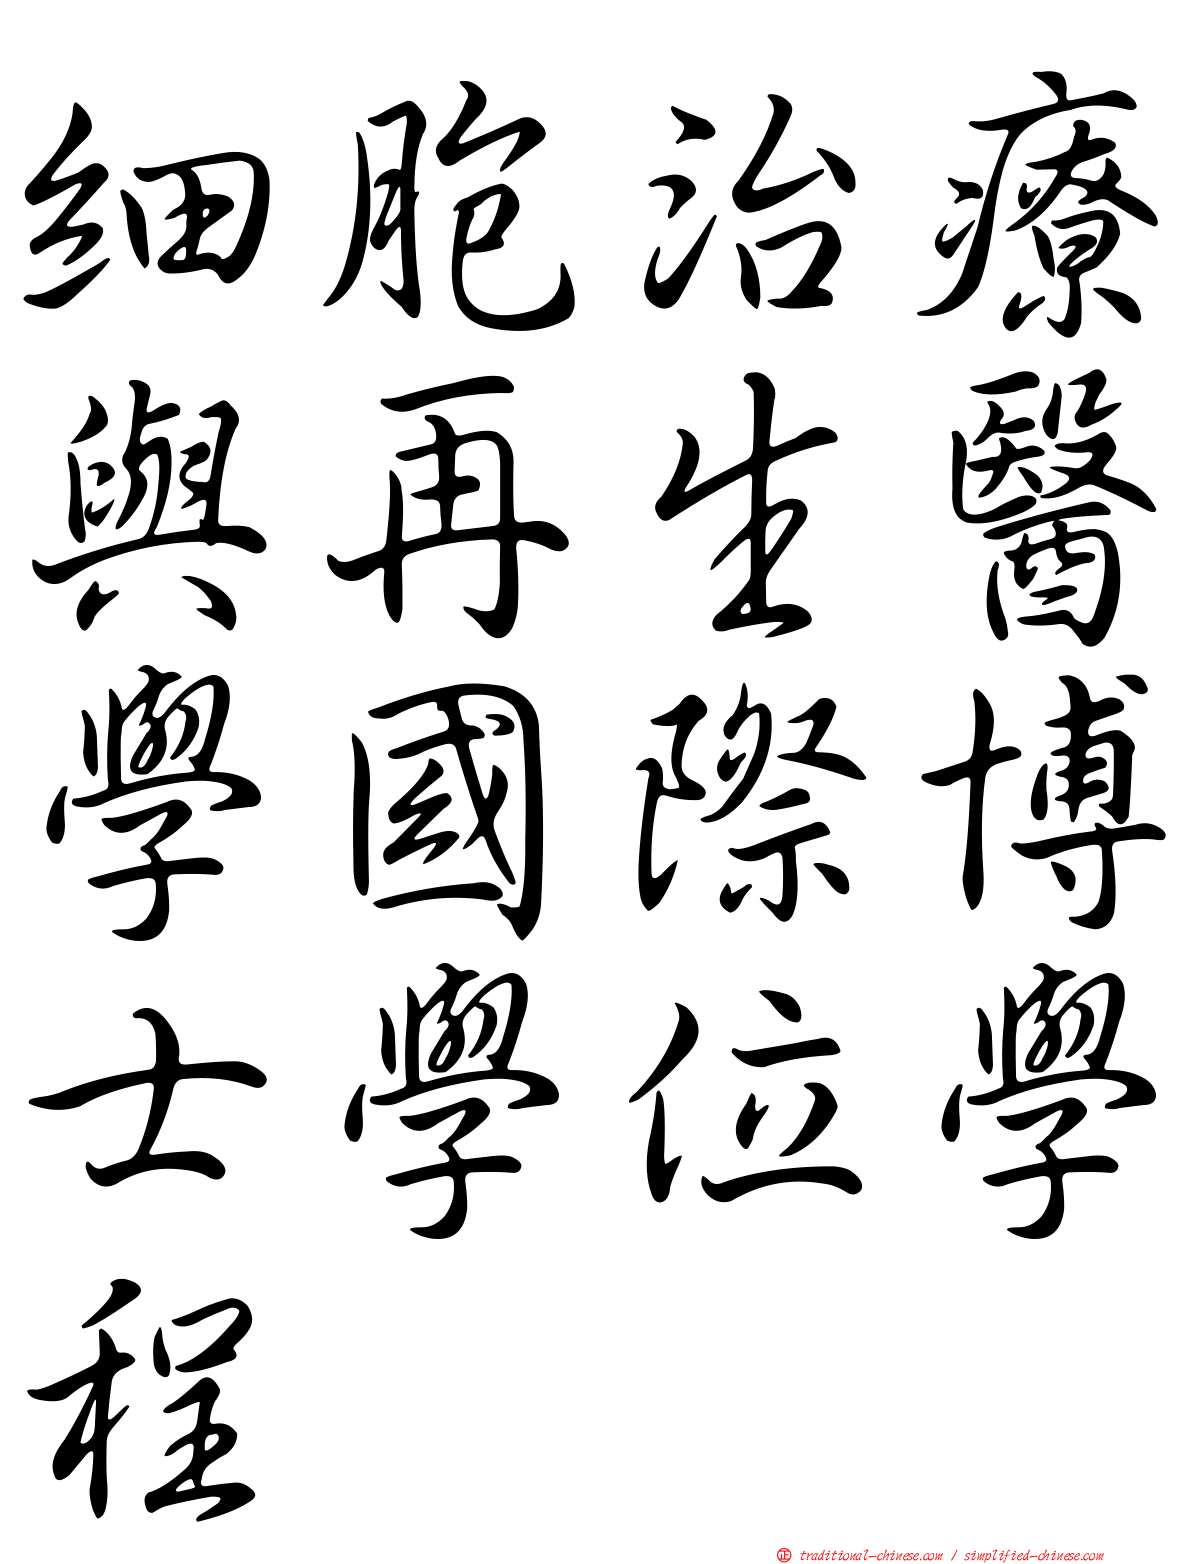 細胞治療
與再生醫
學國際博
士學位學
程
正 traditional-chinese.com / simplified-chinese.com